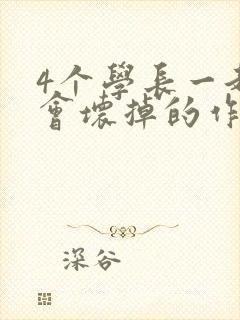 4个學長一
會壞掉的作
深谷